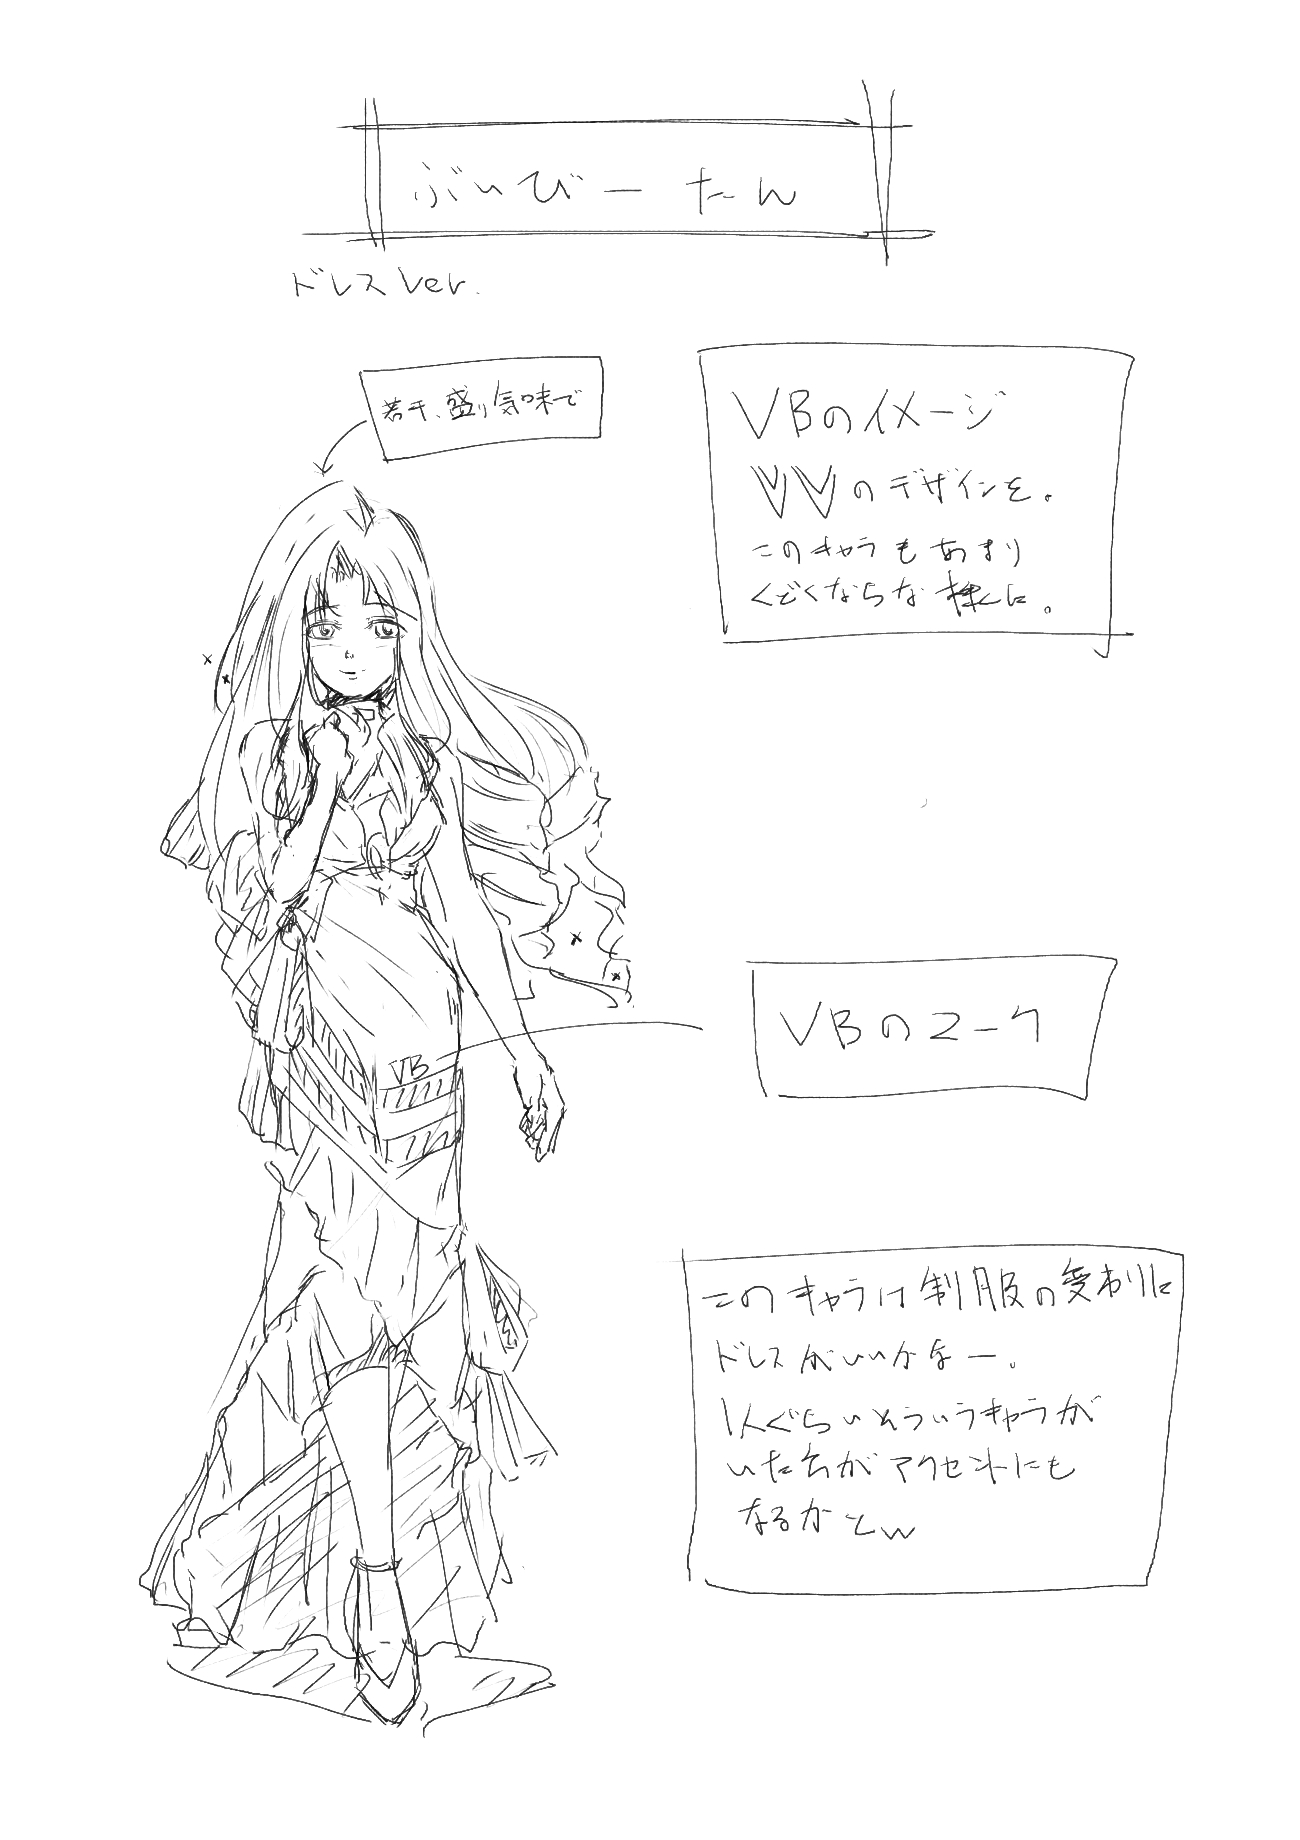 ぶいびーたん
ドレスver.
若干、盛り気味で
VBのイメージ
VVのデザインを。
このキャラもあまり
くどくならな様に。
VB
VBのマーク
このキャラは制服の変わりに
ドレスがいいかなー。
1人ぐらいそういうキャラが
いた方がアクセントにも
なるかとw